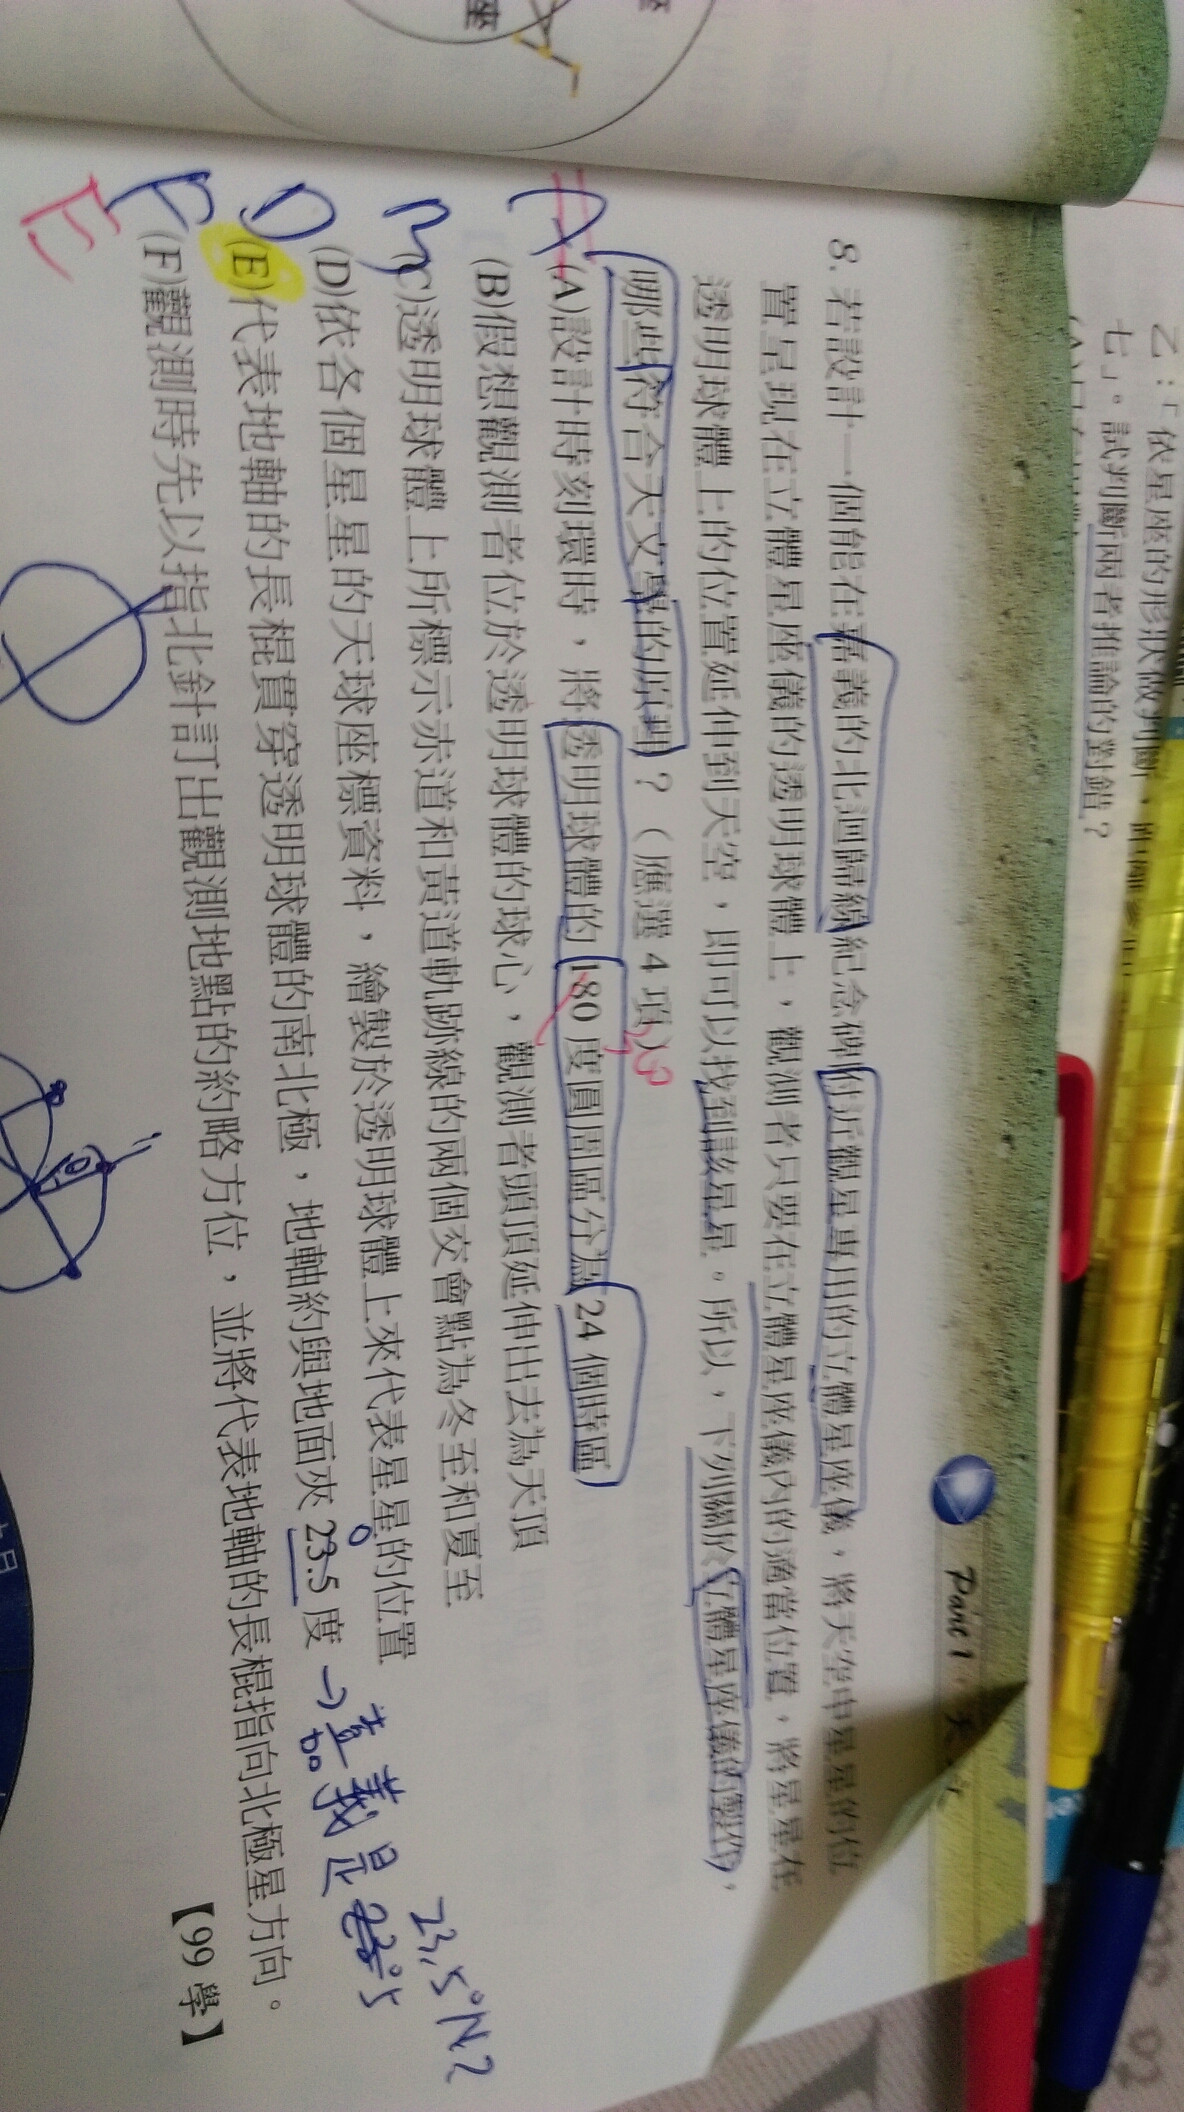 座
乙：「依星座的形狀做判斷，
七」。試判斷兩者推論的對錯？
Part 1
8. 若設計一個能在嘉義的北迴歸線紀念碑附近觀星專用的立體星座儀，將天空中星星的位
置呈現在立體星座儀的透明球體上，觀測者只要在立體星座儀內的適當位置，將星星在
透明球體上的位置延伸到天空，即可以找到該星星。所以，下列關於立體星座儀的製作，
哪些符合天文學的原理？（應選 4 項）
A
(A)設計時刻環時，將透明球體的 180 度圓周區分為 24 個時區
(B)假想觀測者位於透明球體的球心，觀測者頭頂延伸出去為天頂
(C)透明球體上所標示赤道和黃道軌跡線的兩個交會點為冬至和夏至
(D)依各個星星的天球座標資料，繪製於透明球體上來代表星星的位置
D
(E)代表地軸的長棍貫穿透明球體的南北極，地軸約與地面夾 23.5 度
→嘉義是
23.5°N?
F
(F)觀測時先以指北針訂出觀測地點的約略方位，並將代表地軸的長棍指向北極星方向。
E
【99 學】